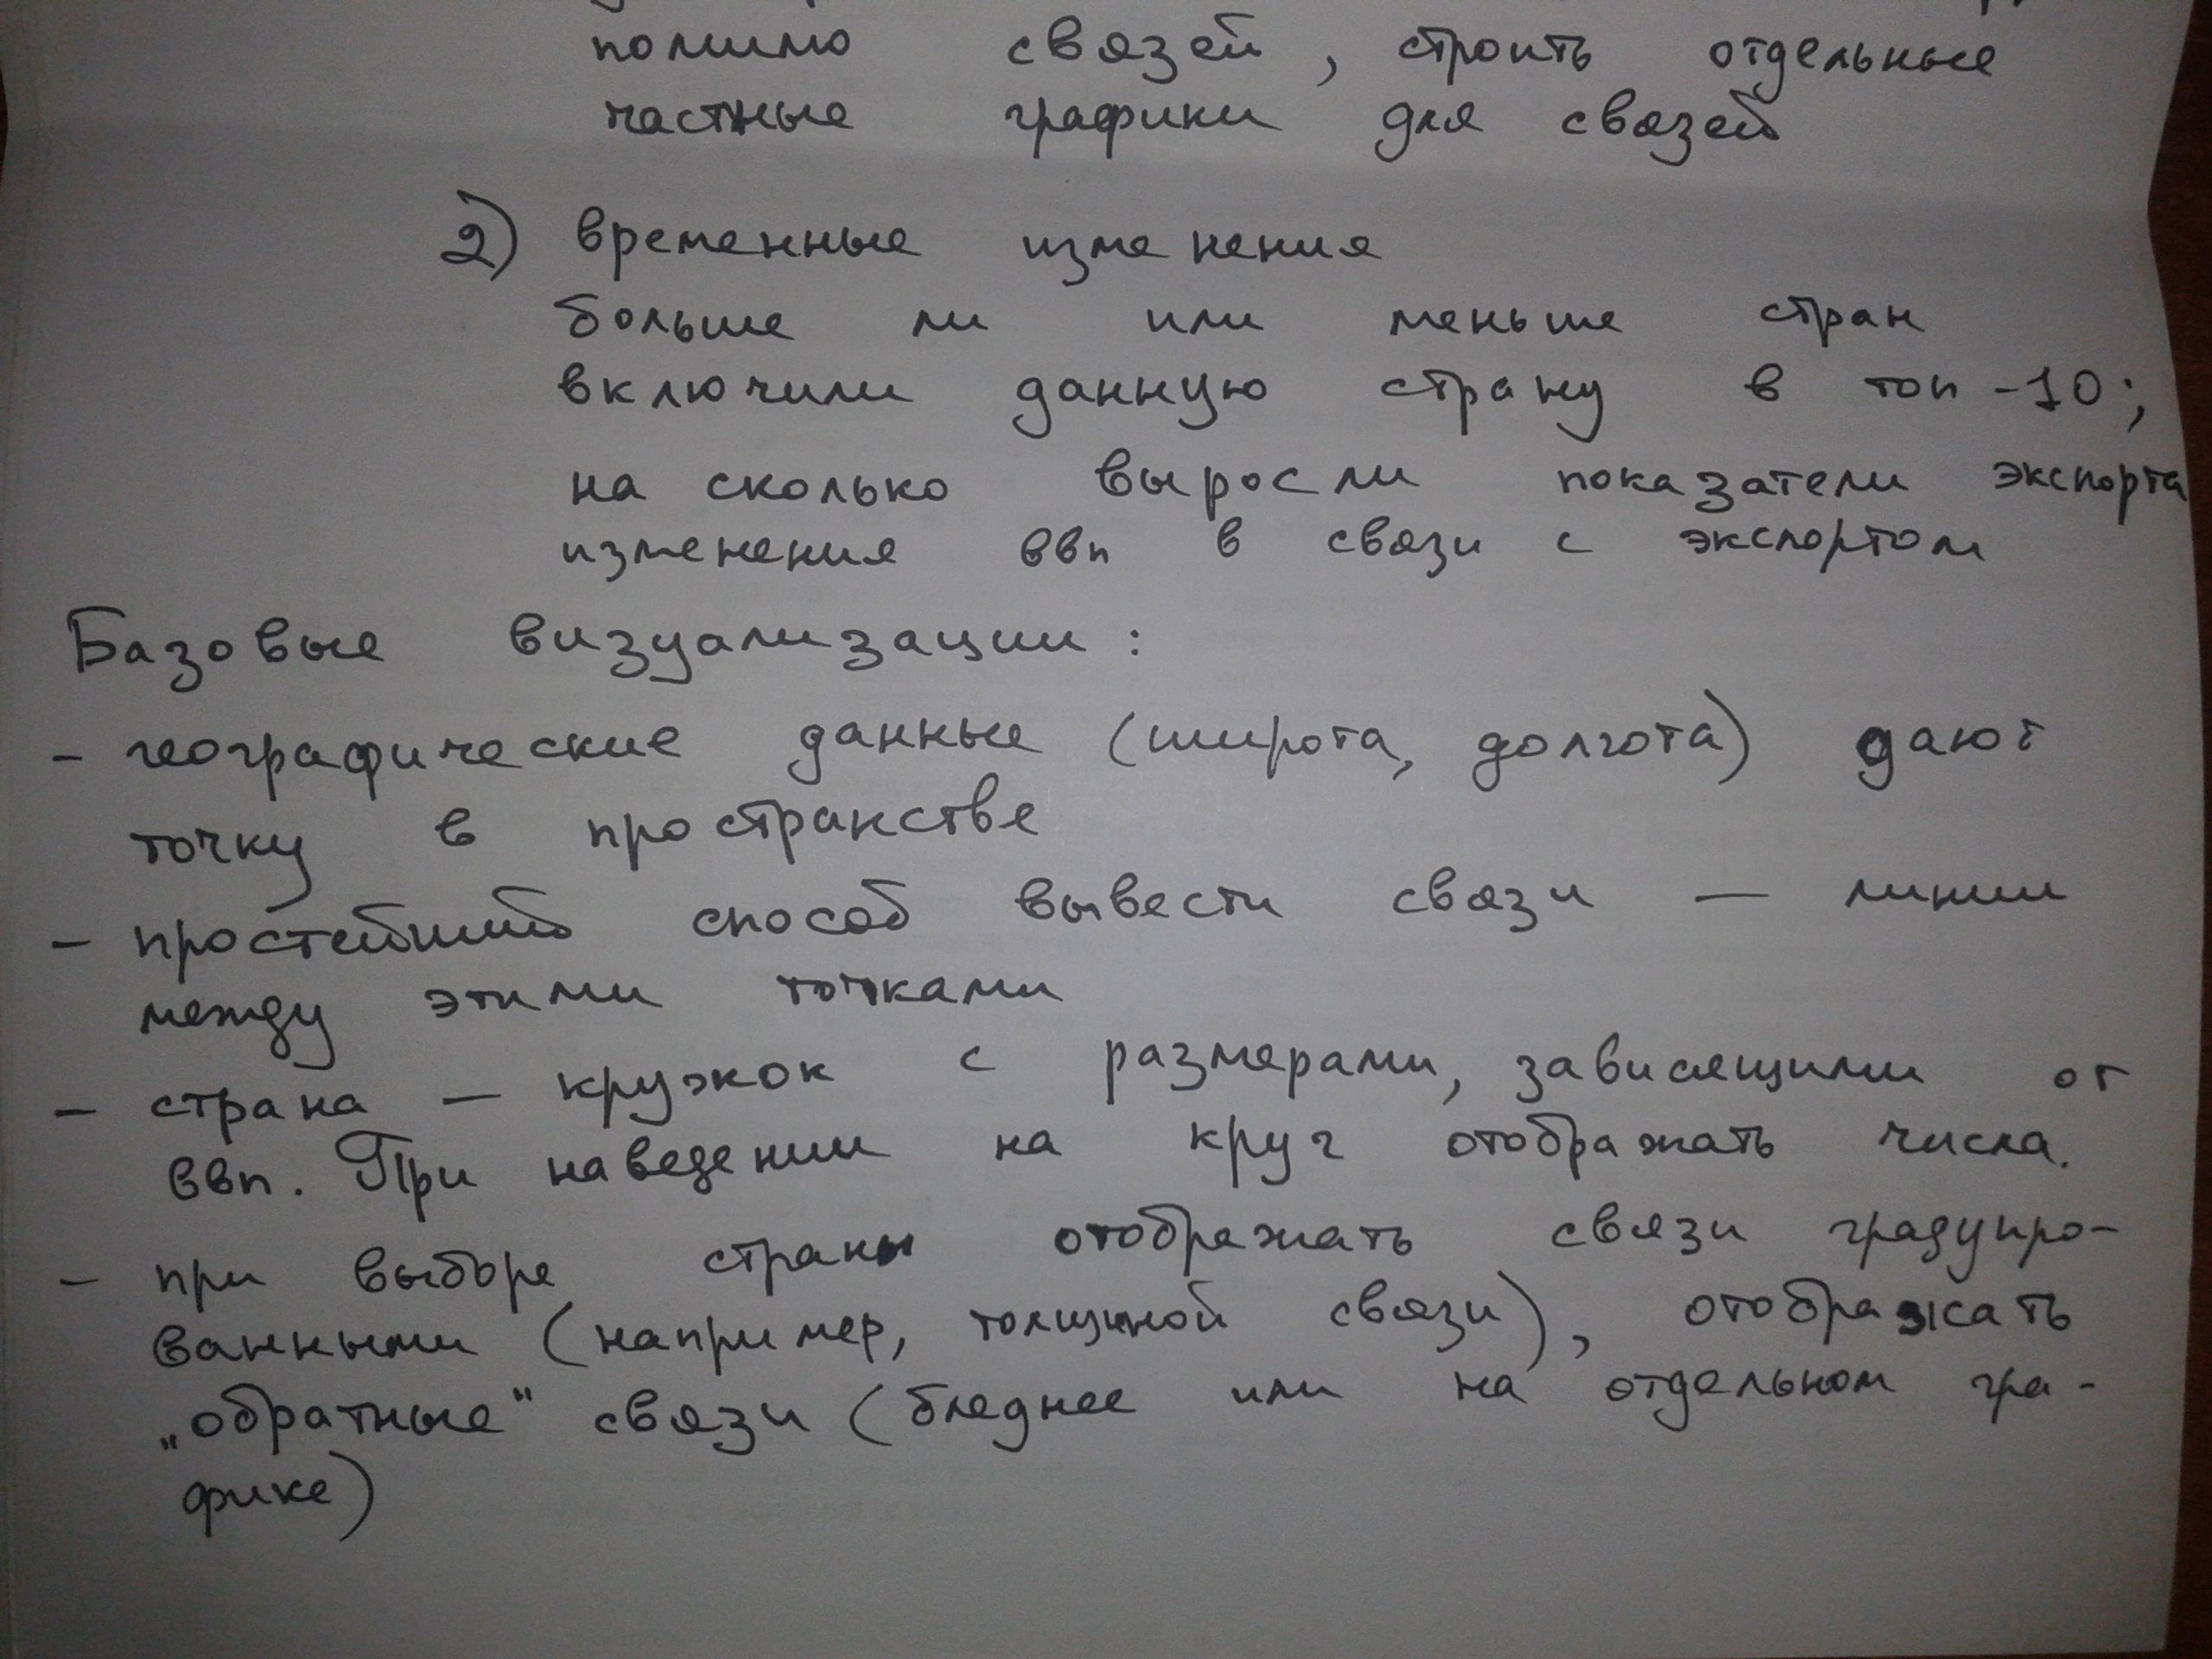 помимо связей, строить отдельные
частные графики для связей
2) временные изменения
больше ли или меньше стран
включили данную страну в топ-10;
на сколько выросли показатели экспорта
изменения ввп в связи с экспортом
Базовые визуализации:
- географические данные (широта, долгота) дают
точку в пространстве
- простейший способ вывести связи — линии
между этими точками
- страна — кружок с размерами, зависящими от
ввп. При наведении на круг отображать числа.
- при выборе страны отображать связи градуиро-
ванными (например, толщиной связи), отображать
„обратные" связи (бледнее или на отдельном гра-
фике)